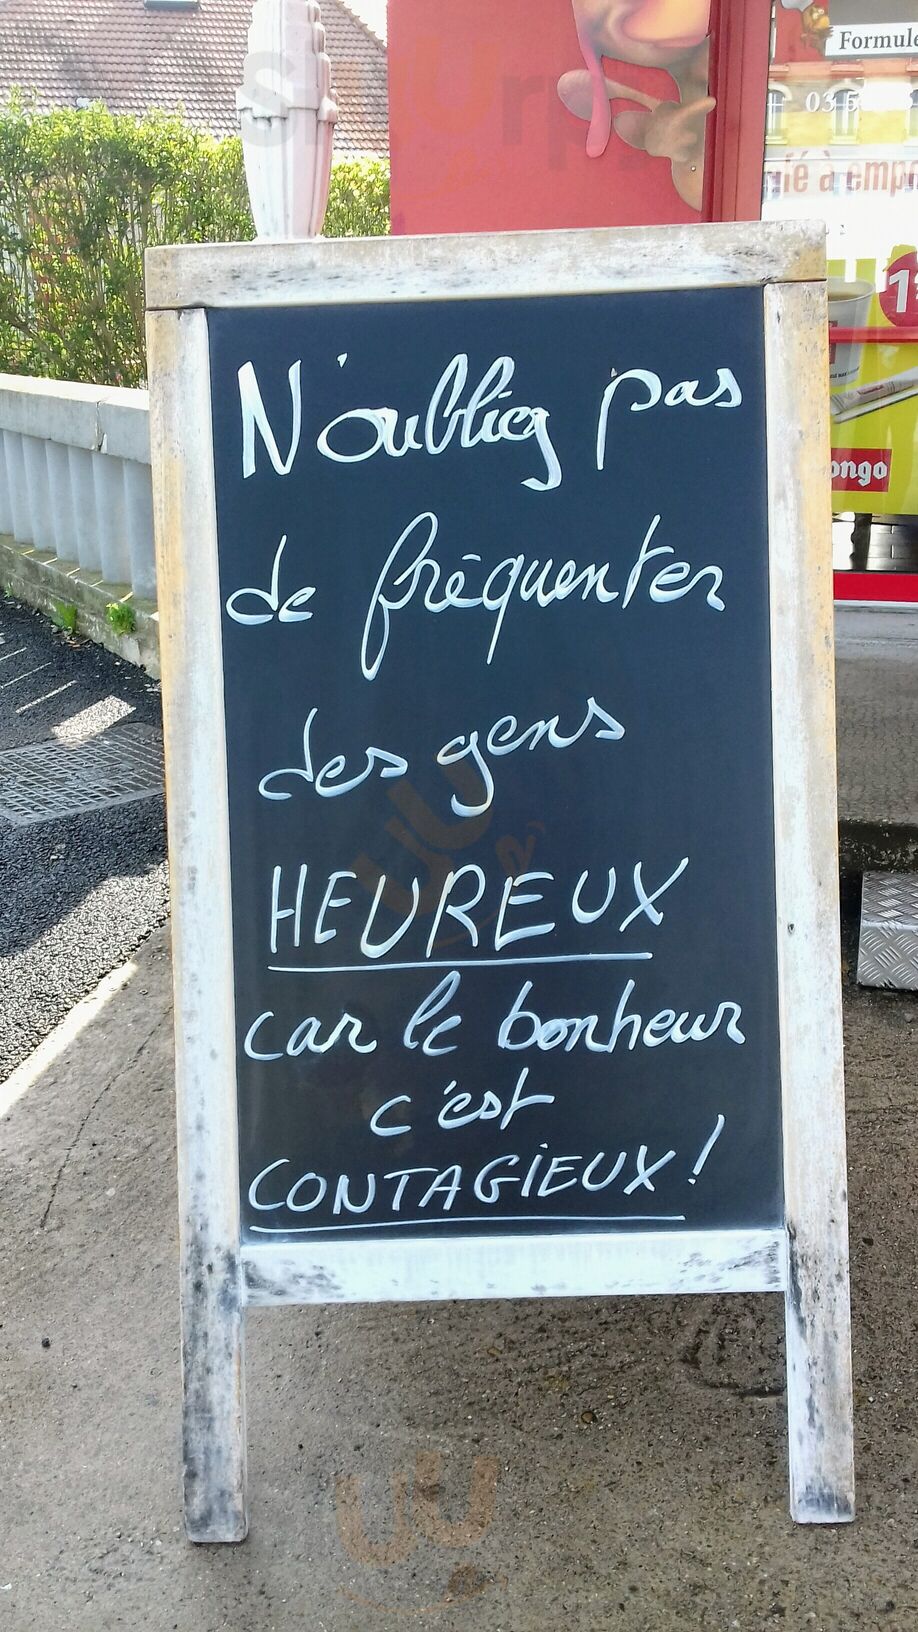 Formule
03 5
à emp
1
ongo
N'oubliez pas
de fréquenter
des gens
HEUREUX
car le bonheur
c'est
CONTAGIEUX !